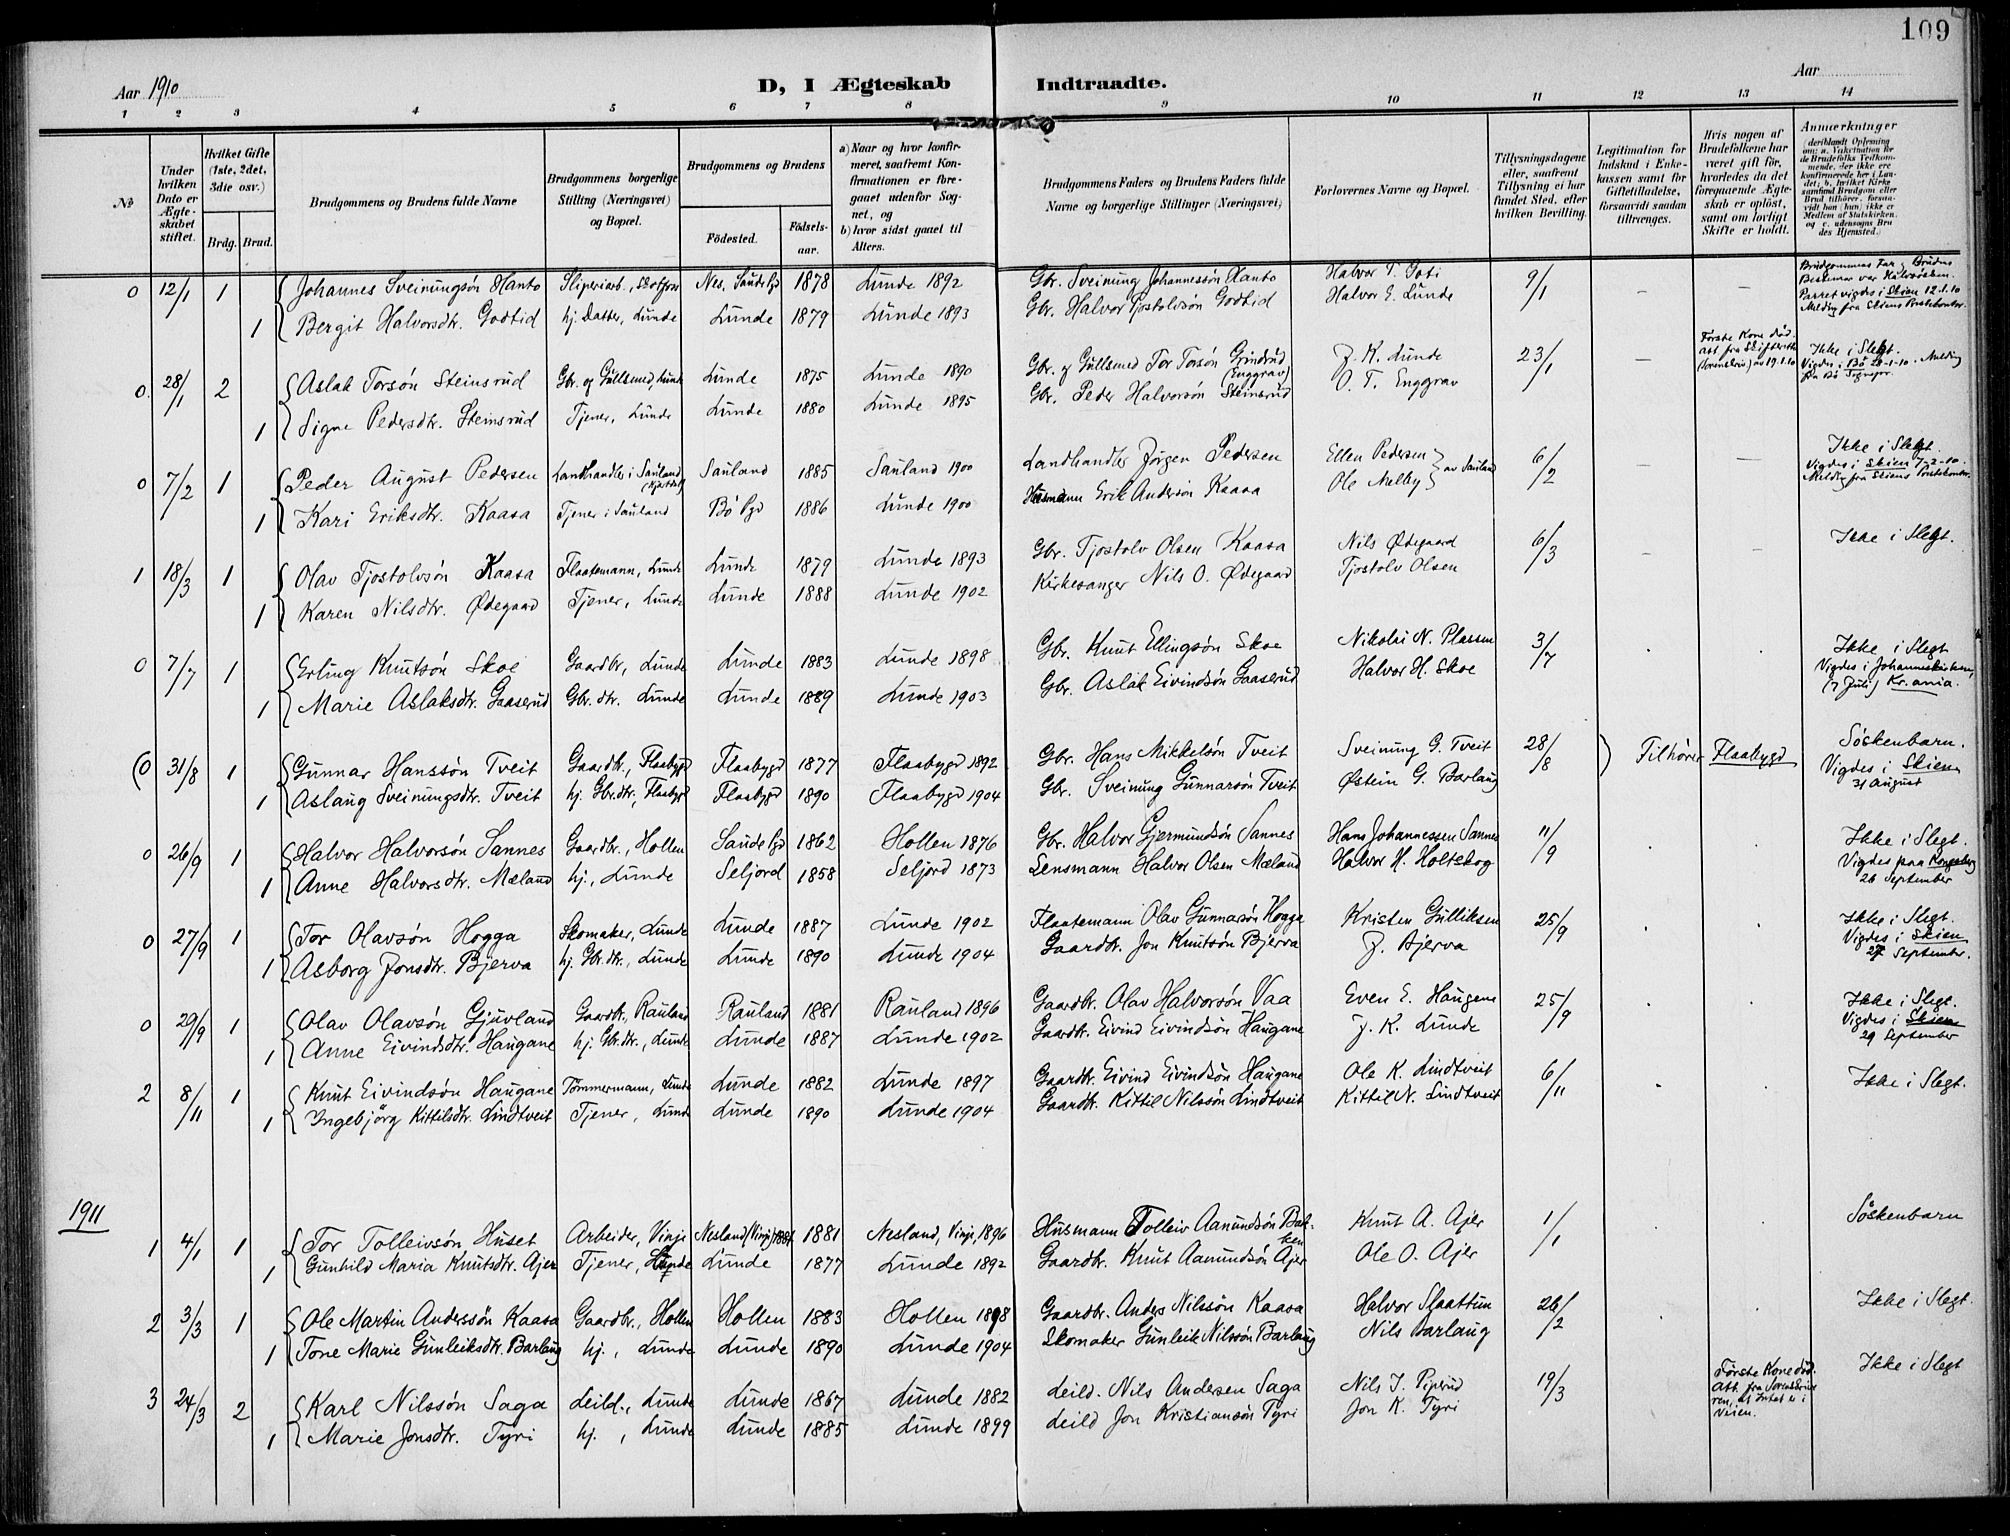 109
Aar 1910
D, I Ægteskab Indtraadte.
Aar
1 2 3 4 5 6 7 8 9 10 11 12 13 14
No.
Under hvilken Dato er Ægteskabet stiftet.
Hvilket Gifte (1ste, 2det, 3die osv.)
Brdg. Brud.
Brudgommens og Brudens fulde Navne
Brudgommens borgerlige Stilling (Næringsvei) og Bopæl.
Brudgommens og Brudens
Fødested.
Fødselsaar.
a) Naar og hvor konfirmeret, saafremt Konfirmationen er foregaaet udenfor Sognet, og
b) hvor sidst gaaet til Alters.
Brudgommens Faders og Brudens Faders fulde Navne og borgerlige Stillinger (Næringsvei)
Forlovernes Navne og Bopæl.
Tillysningsdagene eller, saafremt Tillysning ei har fundet Sted, efter hvilken Bevilling.
Legitimation for Indskud i Enkekassen samt for Giftetilladelse, forsaavidt saadan tiltrænges.
Hvis nogen af Brudefolkene har været gift før, hvorledes da det foregaaende Ægteskab er opløst, samt om lovligt Skifte er holdt.
Anmærkninger (deriblandt Oplysning om: a. Vakcination for de Brudefolks Vedkommende, der ikke ere konfirmerede her i Landet; b. hvilket Kirkesamfund Brudgom eller Brud tilhører, forsaavidt han (hun) ikke er Medlem af Statskirken, og c. udensogns Brudes Hjemsted.)
0 12/1 1 Johannes Sveinungsøn Hanto Sliperiarb., Skotfoss Nes, Saude Pgd 1878 Lunde 1892 Gbr. Sveinung Johannessøn Hanto Halvor T. Goti 9/1 - - Brudgommens Far og Brudens Bestemor var Halvsøsken. Parret vigdes i Skien 12.1.10 Melding fra Skiens Prestekontor.
1 Bergit Halvorsdtr. Godtid hj. Datter, Lunde Lunde 1879 Lunde 1893 Gbr. Halvor Tjostolvsøn Godtid Halvor E. Lunde
0. 28/1 2 Aslak Torsøn Steinsrud Gbr. og Gullsmed, Lunde Lunde 1875 Lunde 1890 Gbr. og Gullsmed Tor Torsøn Grindrud (Enggrav) J. K. Lunde 23/1 - Første Kone død. Att. fra Skifteretten (Sorenskriv) av 19.1.10 Ikke i Slegt. Vigdes i Bø 28-1-10. Melding fra Bø Sognepr.
1 Signe Pedersdtr. Steinsrud Tjener, Lunde Lunde 1880 Lunde 1895 Gbr. Peder Halvorsøn Steinsrud O. T. Enggrav
0 7/2 1 Peder August Pedersen Landhandler i Sauland (Hjartdal) Sauland 1885 Sauland 1900 Landhandler Jørgen Pedersen Ellen Pedersen av Sauland 6/2 - - Ikke i Slegt. Vigdes i Skien 7-2-10. Melding fra Skiens Prestekontor.
1 Kari Eriksdtr. Kaasa Tjener i Sauland Bø Pgd 1886 Lunde 1900 Husmann Erik Andersøn Kaasa Ole Melby
1 18/3 1 Olav Tjostolvsøn Kaasa Flaatemann, Lunde Lunde 1879 Lunde 1893 Gbr. Tjostolv Olsen Kaasa Nils Ødegaard 6/3 - - Ikke i Slegt.
1 Karen Nilsdtr. Ødegaard Tjener, Lunde Lunde 1888 Lunde 1902 Kirkesanger Nils O. Ødegaard Tjostolv Olsen
0 7/7 1 Erling Knutsøn Skoe Gaardbr., Lunde Lunde 1883 Lunde 1898 Gbr. Knut Ellingsøn Skoe Nikolai N. Plassen 3/7 . . Ikke i Slegt Vigdes i Johanneskirken, (7 Juli) Kr.ania.
1 Marie Aslaksdtr. Gaaserud Gbr. dtr. Lunde Lunde 1889 Lunde 1903 Gbr. Aslak Eivindsøn Gaaserud Halvor H. Skoe
(0 31/8 1 Gunnar Hanssøn Tveit Gaardbr., Flaabygd Flaabygd 1877 Flaabygd 1892 Gbr. Hans Mikkelsøn Tveit Sveinung G. Tveit 28/8 ) Tilhører Flaabygd Søskenbarn. Vigdes i Skien 31 August
1 Aslaug Sveinungsdtr. Tveit hj. Gbr.dtr., Flaabygd Flaabygd 1890 Flaabygd 1904 Gbr. Sveinung Gunnarsøn Tveit Østein G. Barlaug
0 26/9 1 Halvor Halvorsøn Sannes Gaardbr., Hollen Saude Pgd 1862 Hollen 1876 Gbr. Halvor Gjermundsøn Sannes Hans Johannessen Sannes 11/9 . . Ikke i Slegt. Vigdes paa Kongsberg 26 September
1 Anne Halvorsdtr. Mæland hj., Lunde Seljord 1858 Seljord 1873 Lensmann Halvor Olsen Mæland Halvor H. Holtskog
0 27/9 1 Tor Olavsøn Hogga Skomaker, Lunde Lunde 1887 Lunde 1902 Flaatemann Olav Gunnarsøn Hogga Kristen Gulliksen 25/9 . . Ikke i Slegt. Vigdes i Skien 27 September.
1 Asborg Jonsdtr. Bjerva hj. Gbr.dtr., Lunde Lunde 1890 Lunde 1904 Gaardbr. Jon Knutsøn Bjerva J. Bjerva
0 29/9 1 Olav Olavsøn Gjuvland Gaardbr., Rauland Rauland 1881 Rauland 1896 Gaardbr. Olav Halvorsøn Vaa Even E. Haugene 25/9 . . Ikke i Slegt. Vigdes i Skien 29 September
1 Anne Eivindsdtr. Haugane hj. Gbr.dtr., Lunde Lunde 1887 Lunde 1902 Gaardbr. Eivind Eivindsøn Haugane J. K. Lunde
2 8/11 1 Knut Eivindsøn Haugane Tømmermann, Lunde Lunde 1882 Lunde 1897 Gaardbr. Eivind Eivindsøn Haugane Ole K. Lindtveit 6/11 . . Ikke i Slegt.
1 Ingebjørg Kittilsdtr. Lindtveit Tjener, Lunde Lunde 1890 Lunde 1904 Gaardbr. Kittil Nilssøn Lindtveit Kittil N. Lindtveit
1911
1 4/1 1 Tor Tolleivsøn Huset Arbeider, Vinje Nesland (Vinje) 1881 1881 Nesland, Vinje, 1896 Husmann Tolleiv Aanundsøn Bakken Knut A. Ajer 1/1 . . Søskenbarn
1 Gunhild Maria Knutsdtr. Ajer Tjener, Lunde Lunde 1877 Lunde 1892 Gaardbr. Knut Aanundsøn Ajer Ole O. Ajer
2 3/3 1 Ole Martin Anderssøn Kaasa Gaardbr., Hollen Hollen 1883 Hollen 1898 Gaardbr. Anders Nilssøn Kaasa Halvor Slaattun 26/2 . . Ikke i Slegt.
1 Tone Marie Gunleiksdtr. Barlaug hj., Lunde Lunde 1890 Lunde 1904 Skomaker Gunleik Nilssøn Barlaug Nils Barlaug
3 24/3 2 Karl Nilssøn Saga Leild., Lunde Lunde 1867 Lunde 1882 Leild. Nils Andersen Saga Nils J. Piperud 19/3 Første Kone død. Att. fra Sorenskriveren, at Intet er i Veien. Ikke i Slegt
1 Marie Jonsdtr. Tyri hj., Lunde Lunde 1885 Lunde 1899 Leild Jon Kristiansøn Tyri Jon K. Tyri